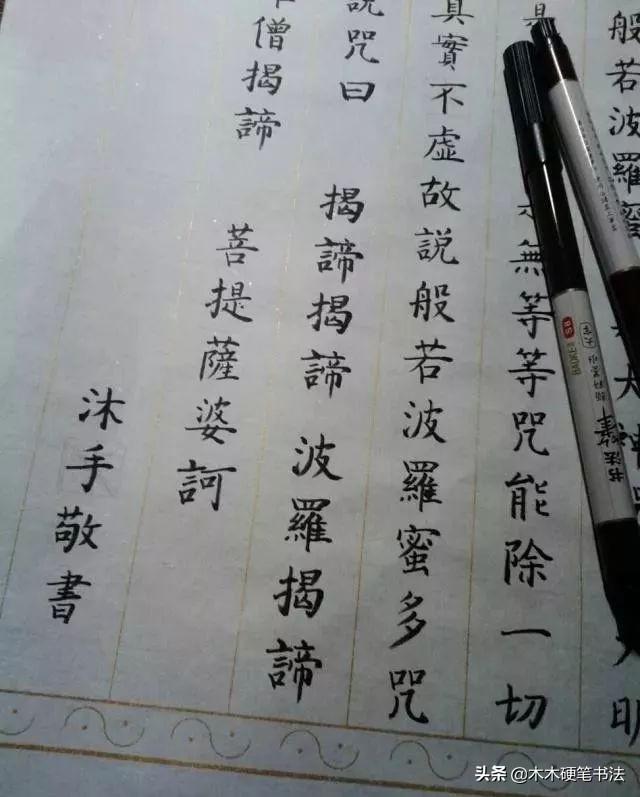 般若波羅蜜大神明
是無等等咒能除一切
真實不虛故說般若波羅蜜多咒
說咒曰 揭諦揭諦 波羅揭諦
僧揭諦 菩提薩婆訶
沐手敬書
书法
头条 @木木硬笔书法